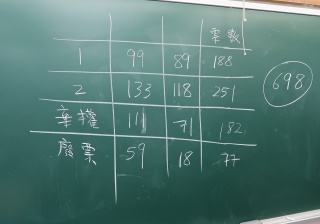 票數
1 99 89 188
2 133 118 251
698
棄權 111 71 182
廢票 59 18 77